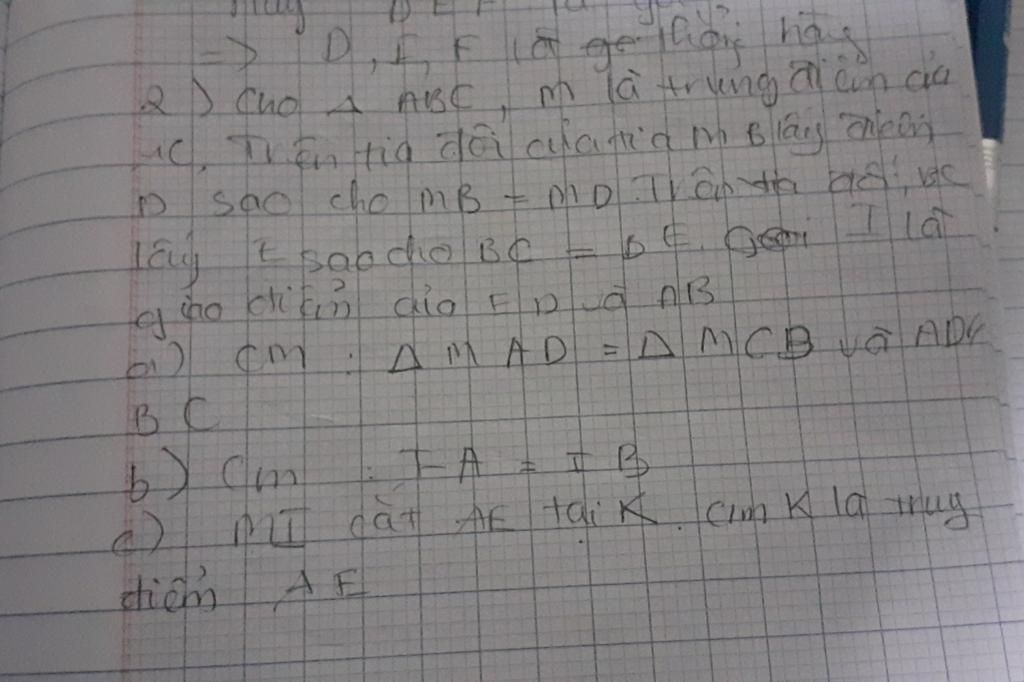 => D, I, F là ge thẳng hàng
2) Cho Δ ABC, m là trung điểm của
AC. Trên tia đối của tia MB lấy điểm
D sao cho MB = MD. Trên tia đối, BC
lấy E sao cho BC = BE. Gọi I là
giao điểm của ED và AB
a) CM : Δ MAD = Δ MCB và AD//
BC
b) Cm : IA = IB
c) MI cắt AE tại K. cm K là trug
điểm AE